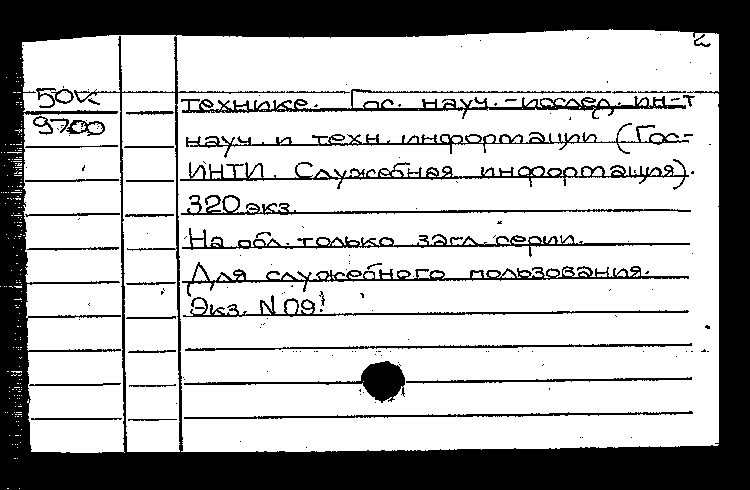 2
50К
9700
технике. Гос. науч.-исслед. ин-т
науч. и техн. информации (Гос-
ИНТИ. Служебная информация).
320 экз.
На обл. только загл. серии.
Для служебного пользования.
Экз. N 09.